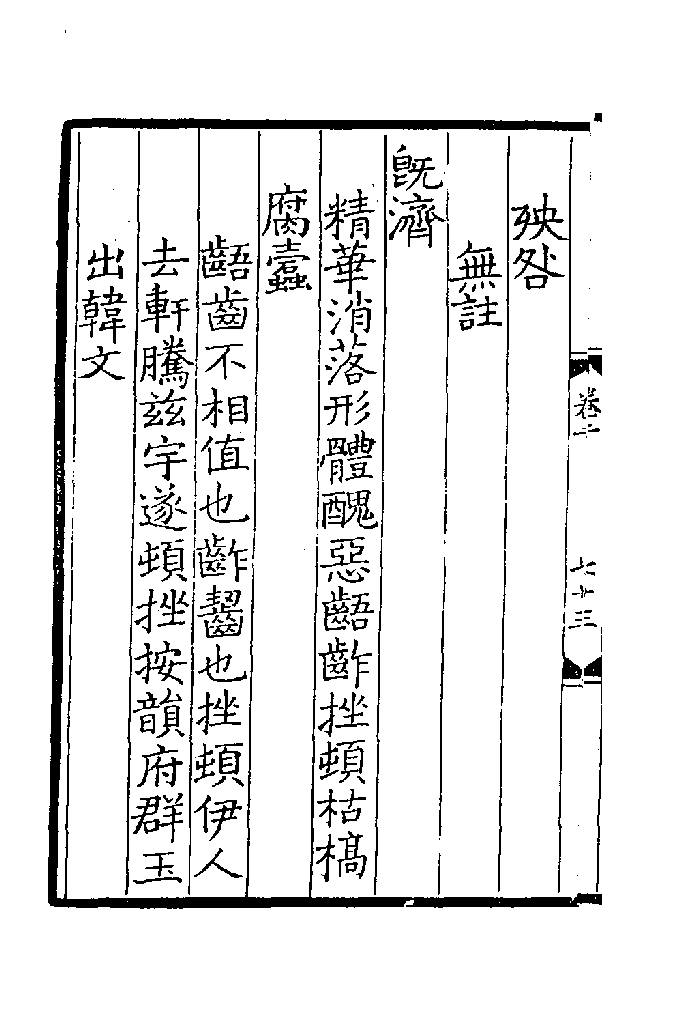 殃咎
無註
旣濟
精華消落形體醜惡齬齚挫頓枯槁
腐蠹
齬齒不相值也齚齧也挫頓伊人
去軒騰兹宇遂頓挫按韻府群玉
出韓文
卷十
七十三